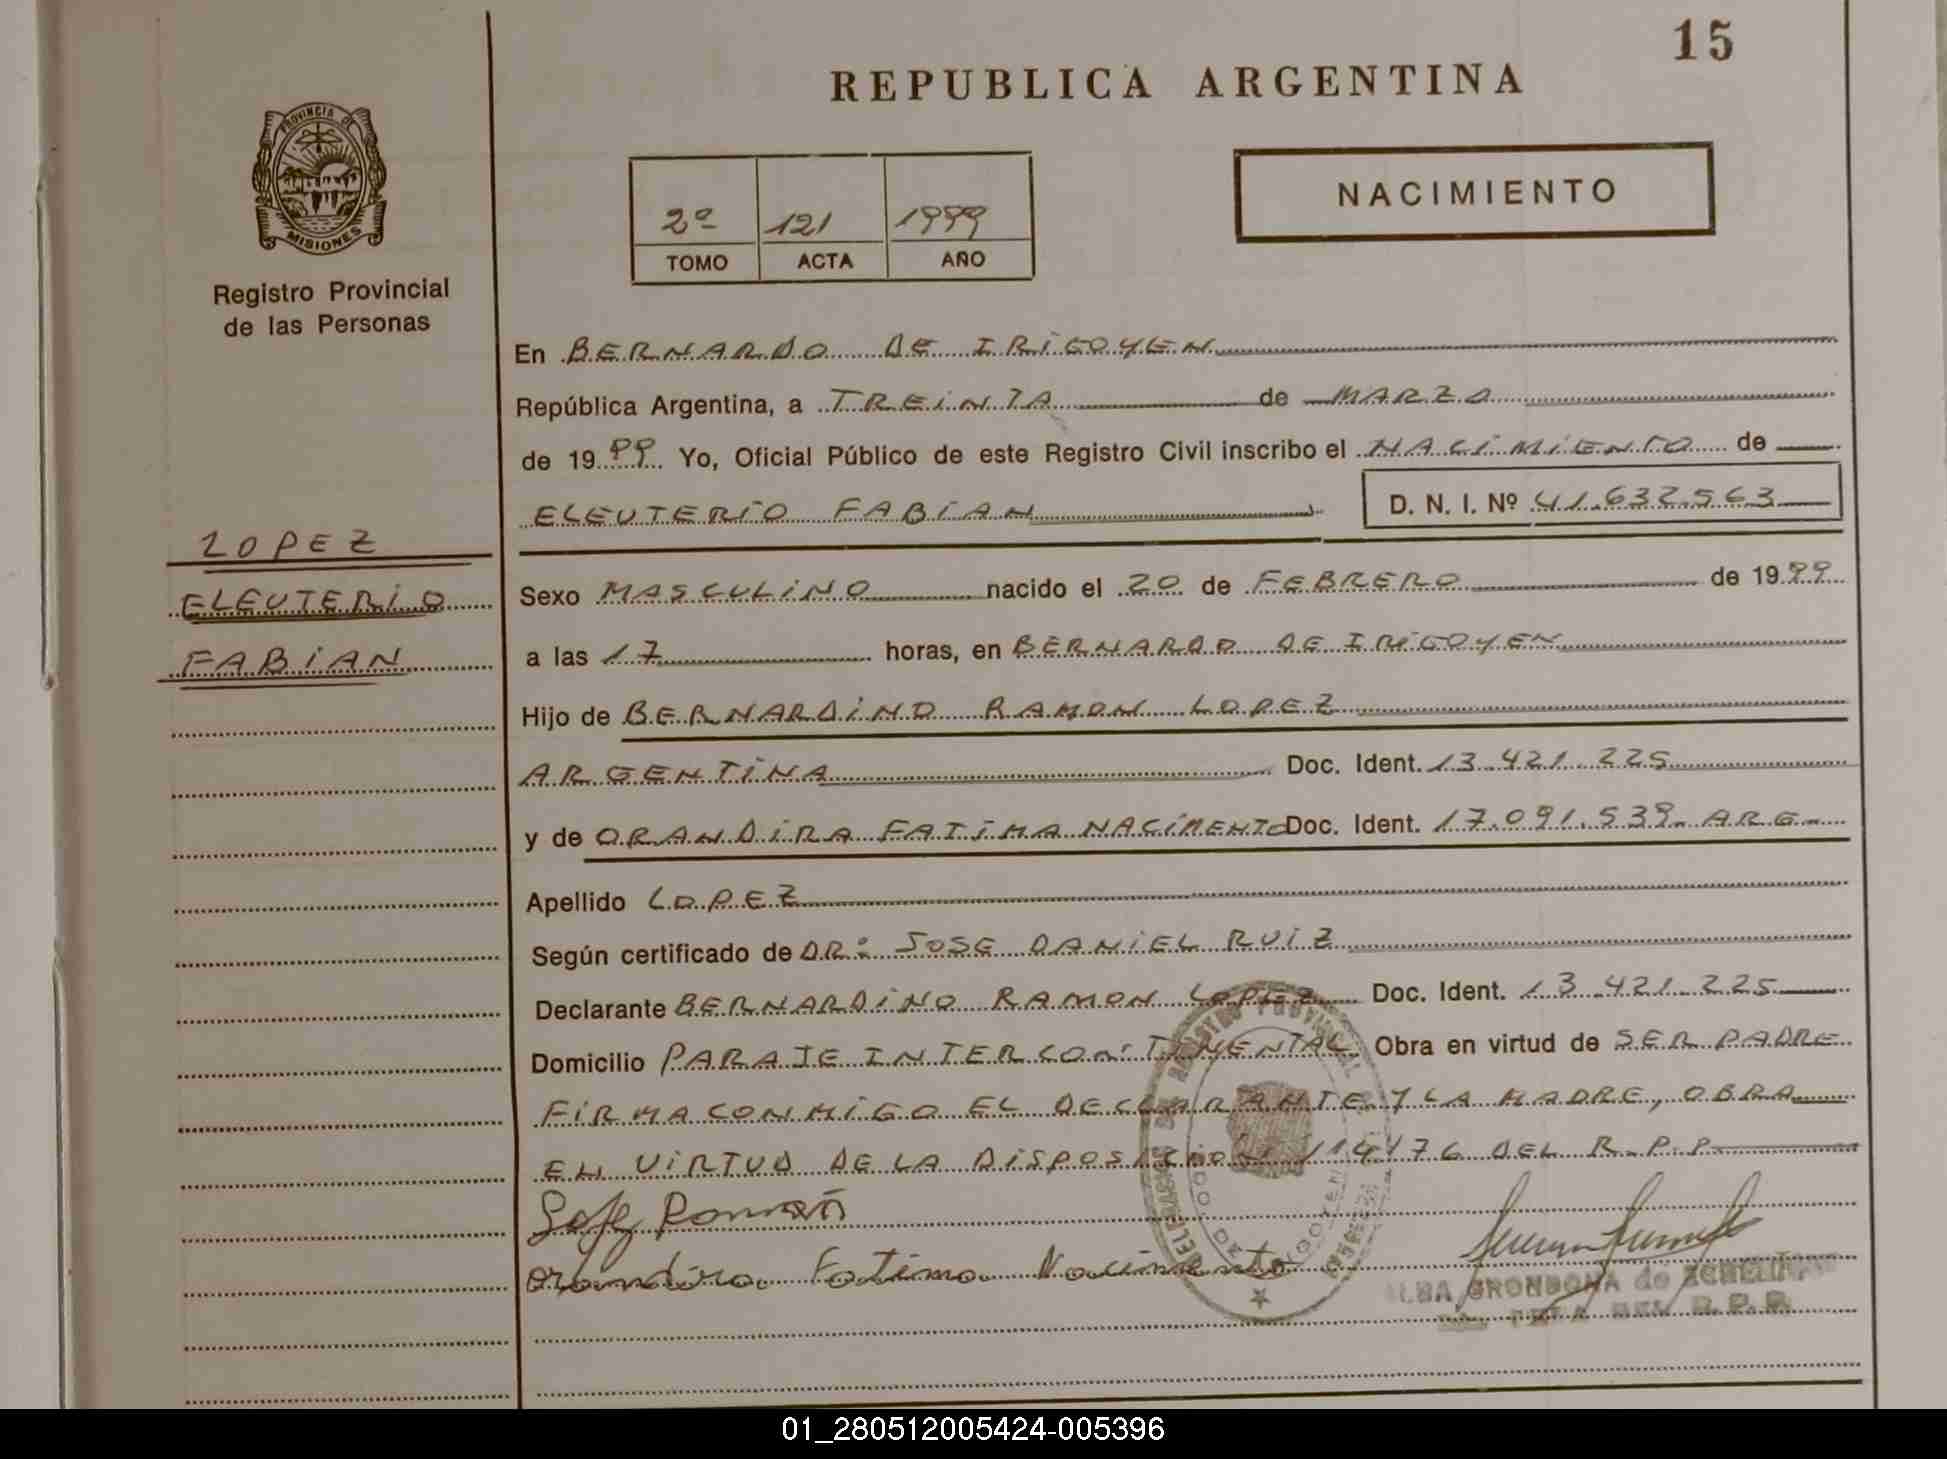 15
REPUBLICA ARGENTINA
PROVINCIA DE
MISIONES
Registro Provincial
de las Personas
2º 121 1999
TOMO ACTA AÑO
NACIMIENTO
En BERNARDO DE IRIGOYEN
República Argentina, a TREINTA de MARZO
de 1999 Yo, Oficial Público de este Registro Civil inscribo el NACIMIENTO de
ELEUTERIO FABIAN D. N. I. Nº 41.632.563
LOPEZ
ELEUTERIO
FABIAN
Sexo MASCULINO nacido el 20 de FEBRERO de 1999
a las 17 horas, en BERNARDO DE IRIGOYEN
Hijo de BERNARDINO RAMON LOPEZ
ARGENTINA Doc. Ident. 13.421.225
y de ORANDIRA FATIMA NACIMENTO Doc. Ident. 17.091.539. ARG.
Apellido LOPEZ
Según certificado de DR: JOSE DANIEL RUIZ
Declarante BERNARDINO RAMON LOPEZ Doc. Ident. 13.421.225
Domicilio PARAJE INTERCONTINENTAL Obra en virtud de SER PADRE
FIRMA CONMIGO EL DECLARANTE Y LA MADRE, OBRA
EN VIRTUD DE LA DISPOSICION DEL R.P.P.
Ramon
orandira Fatima Nacimento
REGISTRO PROVINCIAL DE LAS
GRONDONA de
R.P.P.
01_280512005424-005396